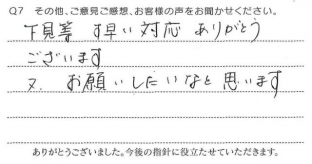 Q7 その他、ご意見ご感想、お客様の声をお聞かせください。
下見等 す早い対応 ありがとう
ございます
又、お願いしたいなと思います
ありがとうございました。今後の指針に役立たせていただきます。